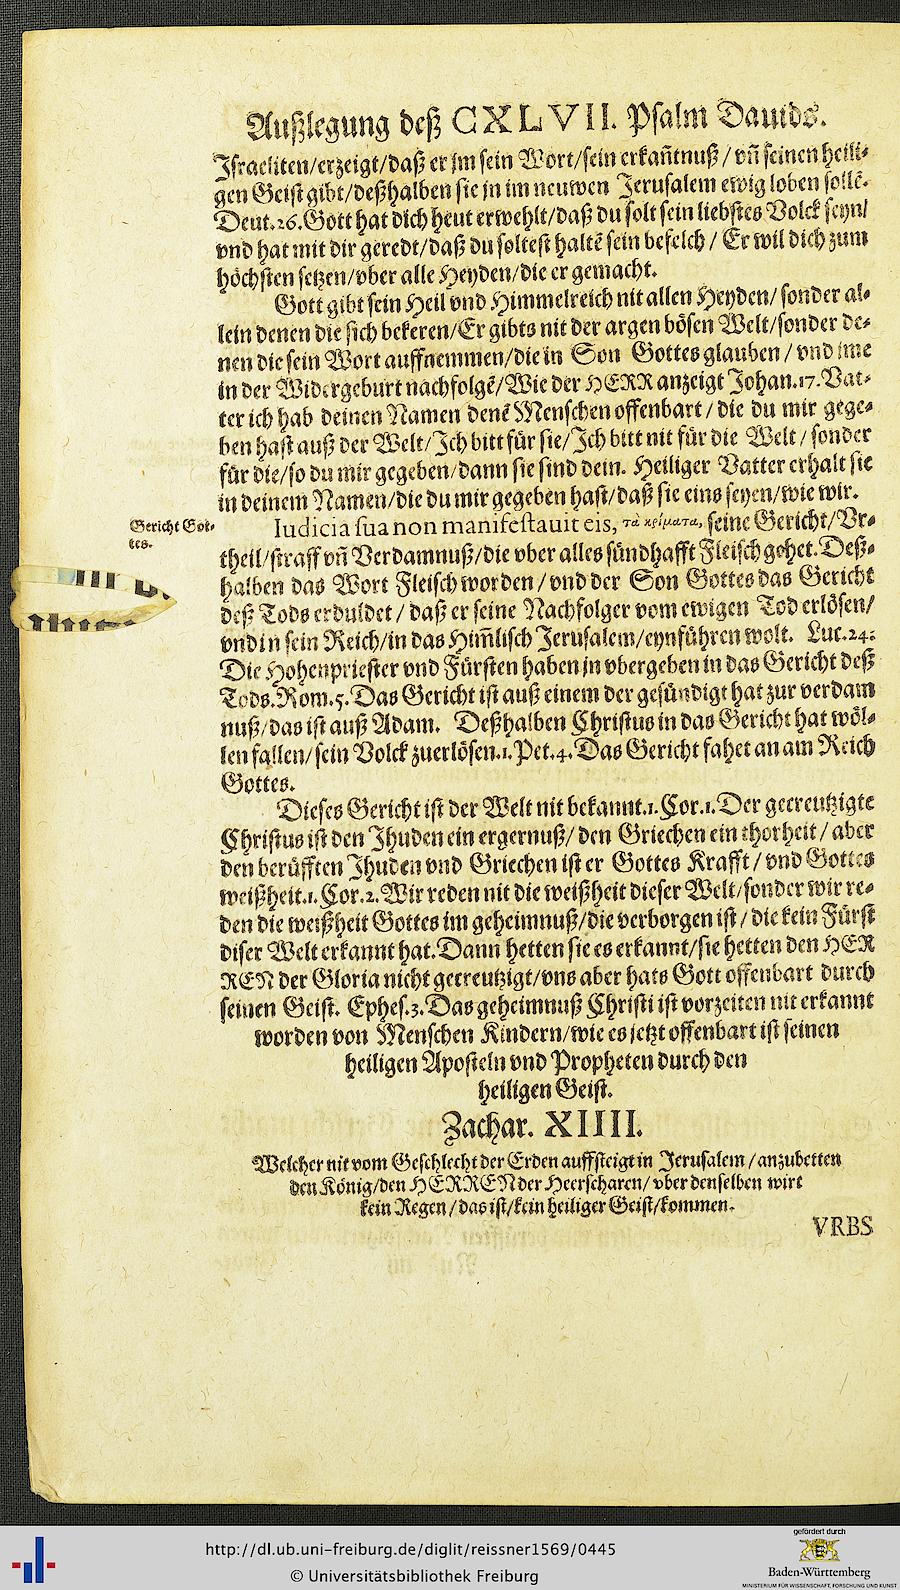 Außlegung deß CXLVII. Psalm Dauids.
Israeliten/erzeigt/daß er jm sein Wort/sein erkañtnuß/vñ seinen heili⸗
gen Geist gibt/deßhalben sie jn im neuwen Jerusalem ewig loben sollẽ.
Deut.26.Gott hat dich heut erwehlt/daß du solt sein liebstes Volck seyn/
vnd hat mit dir geredt/daß du soltest haltẽ sein befelch/ Er wil dich zum
höchsten setzen/vber alle Heyden/die er gemacht.
Gott gibt sein Heil vnd Himmelreich nit allen Heyden/sonder al⸗
lein denen die sich bekeren/Er gibts nit der argen bösen Welt/sonder de⸗
nen die sein Wort auffnemmen/die in Son Gottes glauben/vnd jme
in der Widergeburt nachfolgẽ/Wie der HERR anzeigt Johan.17.Vat⸗
ter ich hab deinen Namen denẽ Menschen offenbart/die du mir gege⸗
ben hast auß der Welt/Ich bitt für sie/Ich bitt nit für die Welt/sonder
für die/so du mir gegeben/dann sie sind dein. Heiliger Vatter erhalt sie
in deinem Namen/die du mir gegeben hast/daß sie eins seyen/wie wir.
Gericht Got⸗
tes.
Iudicia sua non manifestauit eis, τὰ κρίματα, seine Gericht/Vr⸗
theil/straff vñ Verdamnuß/die vber alles sündhafft Fleisch gehet. Deß⸗
halben das Wort Fleisch worden/vnd der Son Gottes das Gericht
deß Tods erduldet/daß er seine Nachfolger vom ewigen Tod erlösen/
vnd in sein Reich/in das Him̃lisch Jerusalem/eynführen wolt. Luc.24:
Die Hohenpriester vnd Fürsten haben jn vbergeben in das Gericht deß
Tods.Rom.5.Das Gericht ist auß einem der gesündigt hat zur verdam
nuß/das ist auß Adam. Deßhalben Christus in das Gericht hat wöl⸗
len fallen/sein Volck zuerlösen.1.Pet.4.Das Gericht fahet an am Reich
Gottes.
Dieses Gericht ist der Welt nit bekannt.1.Cor.1.Der gecreutzigte
Christus ist den Jhuden ein ergernuß/den Griechen ein thorheit/aber
den berüfften Jhuden vnd Griechen ist er Gottes Krafft/vnd Gottes
weißheit.1.Cor.2.Wir reden nit die weißheit dieser Welt/sonder wir re⸗
den die weißheit Gottes im geheimnuß/die verborgen ist/die kein Fürst
diser Welt erkannt hat.Dann hetten sie es erkannt/sie hetten den HER
REN der Gloria nicht gecreutzigt/vns aber hats Gott offenbart durch
seinen Geist. Ephes.3.Das geheimnuß Christi ist vorzeiten nit erkannt
worden von Menschen Kindern/wie es jetzt offenbart ist seinen
heiligen Aposteln vnd Propheten durch den
heiligen Geist.
Zachar. XIIII.
Welcher nit vom Geschlecht der Erden auffsteigt in Jerusalem/anzubetten
den König/den HERREN der Heerscharen/vber denselben wirt
kein Regen/das ist/kein heiliger Geist/kommen.
VRBS
http://dl.ub.uni-freiburg.de/diglit/reissner1569/0445
© Universitätsbibliothek Freiburg
gefördert durch
Baden-Württemberg
MINISTERIUM FÜR WISSENSCHAFT, FORSCHUNG UND KUNST